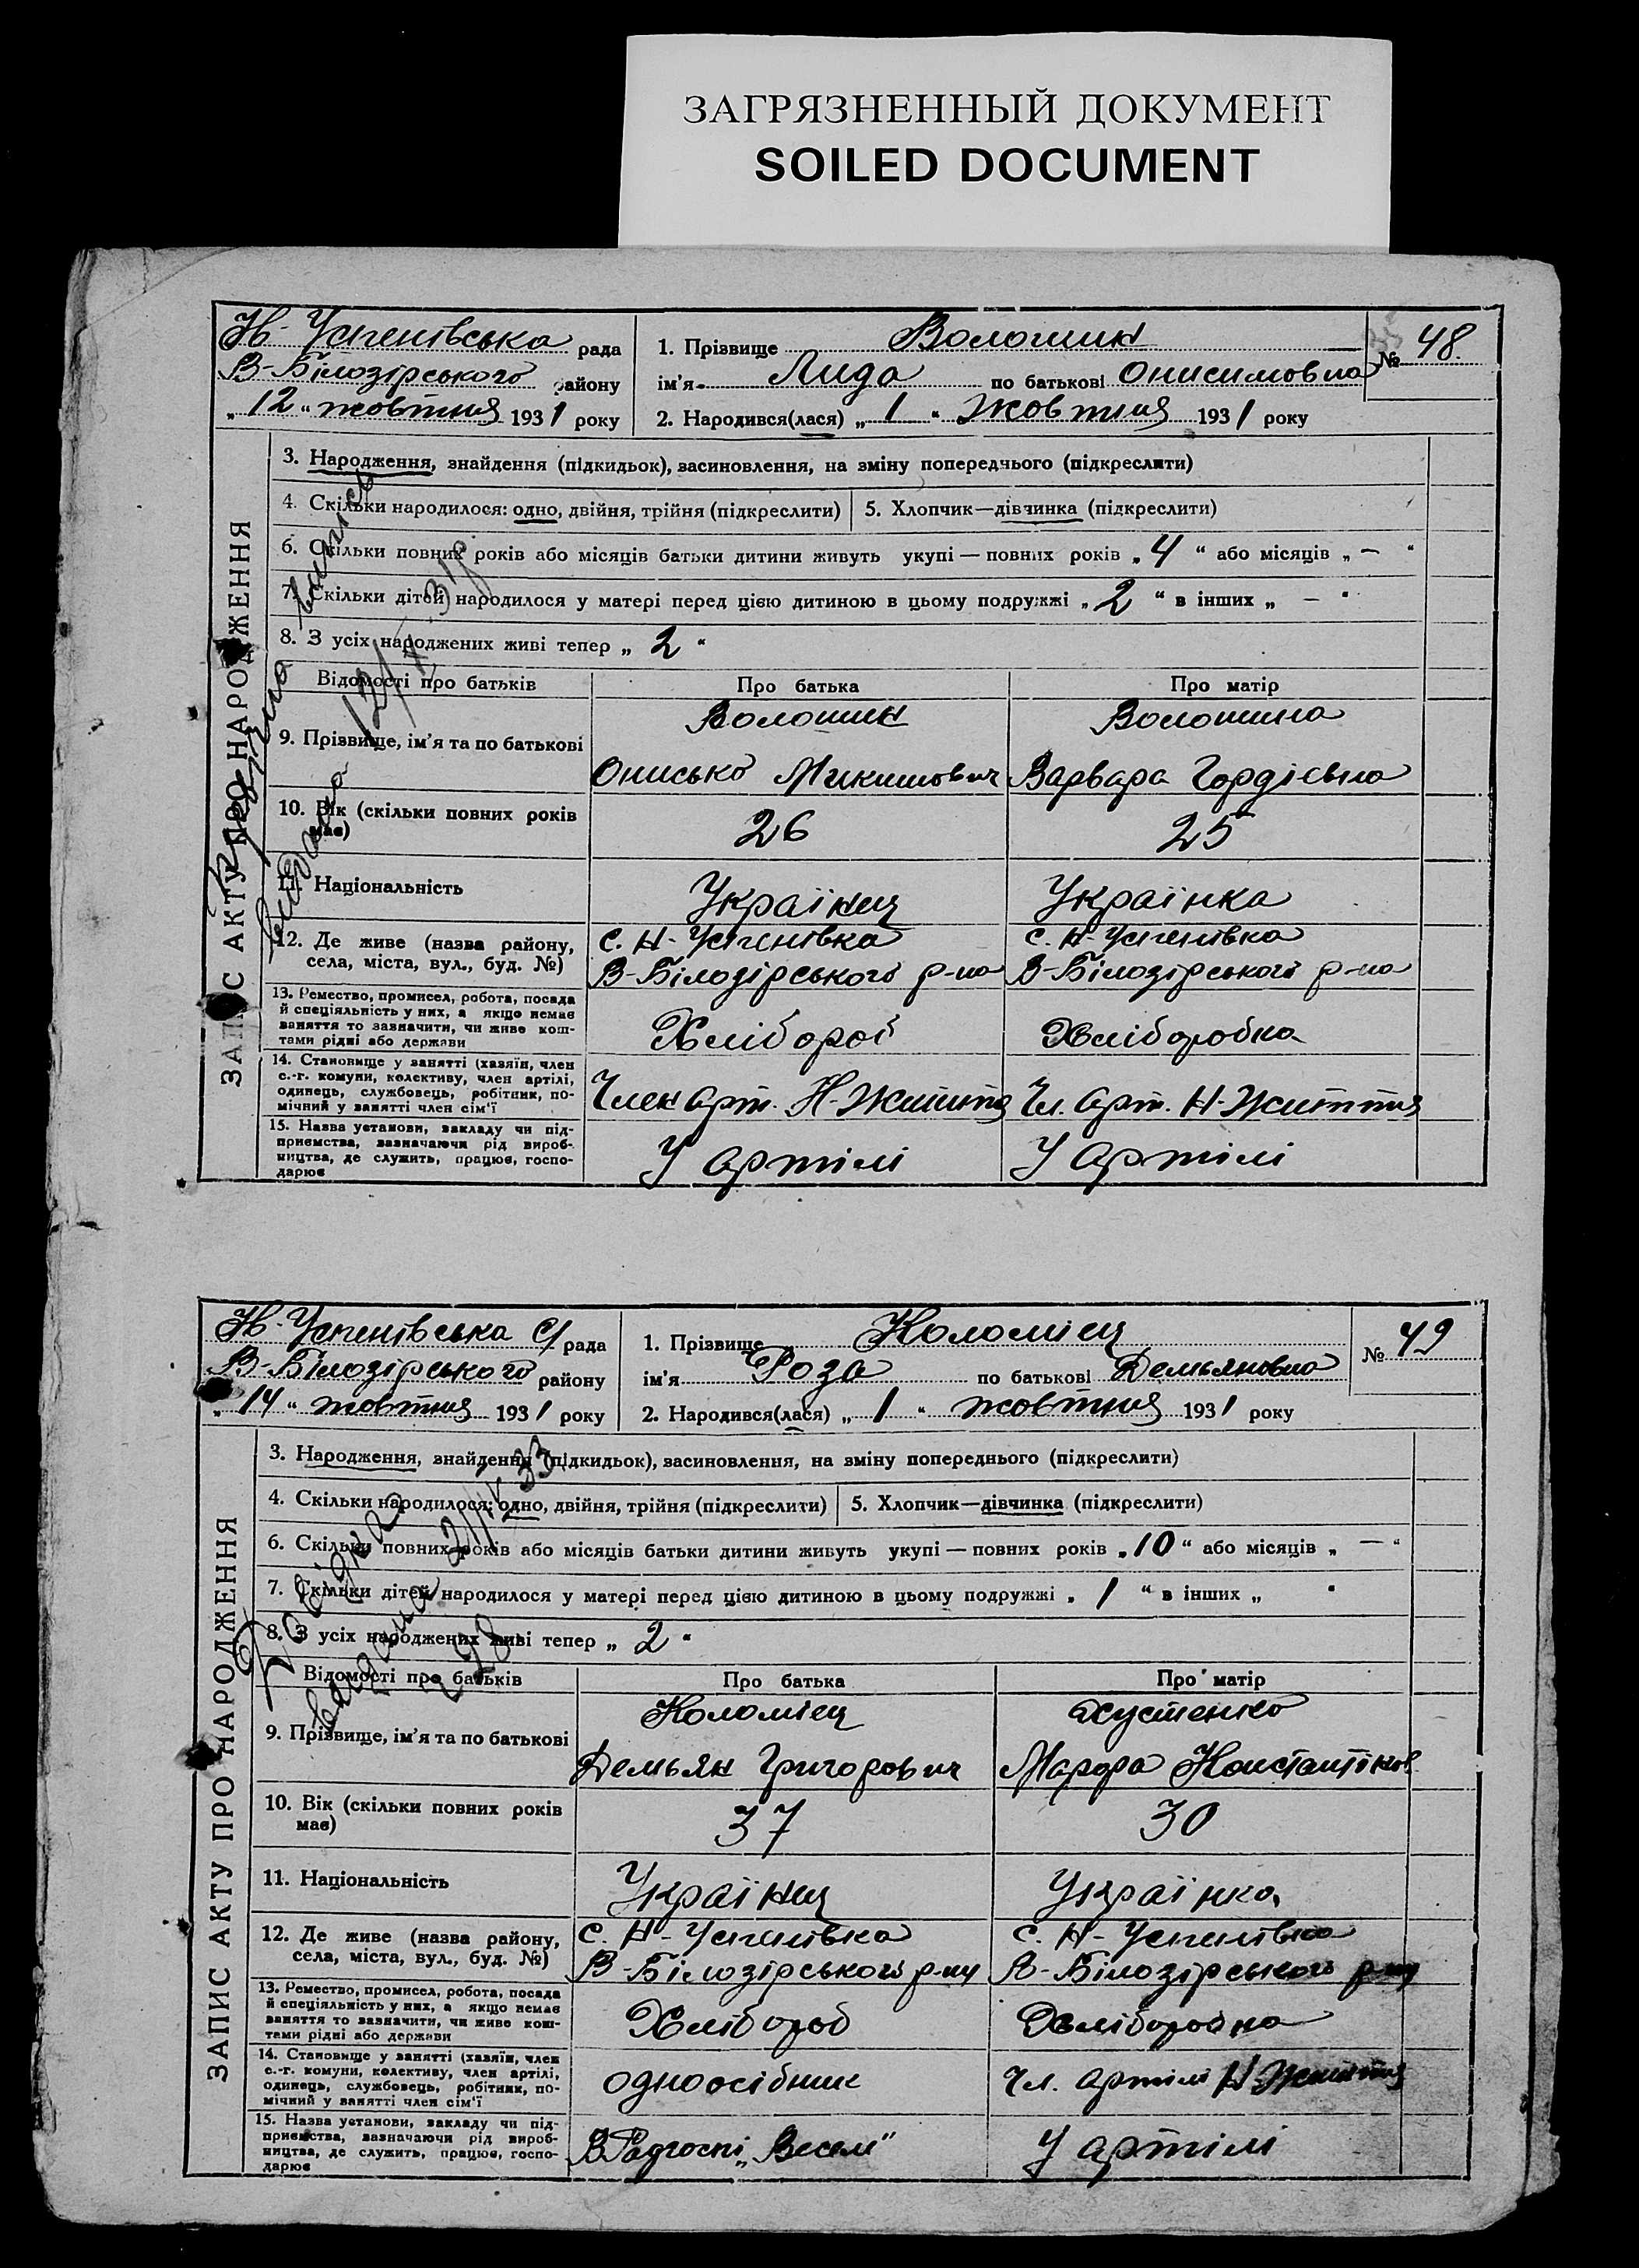 ЗАГРЯЗНЕННЫЙ ДОКУМЕНТ
SOILED DOCUMENT
Н-Успенівська рада
В-Білозірського району
„12“ жовтня 1931 року
1. Прізвище Волошин
№ 48.
ім'я Лида по батькові Онисимовна
2. Народився(лася) „1“ Жовтня 1931 року
ЗАПИС АКТУ ПРО НАРОДЖЕННЯ
3. Народження, знайдення (підкидьок), засиновлення, на зміну попереднього (підкреслити)
4. Скільки народилося: одно, двійня, трійня (підкреслити)
5. Хлопчик—дівчинка (підкреслити)
6. Скільки повних років або місяців батьки дитини живуть укупі — повних років „4“ або місяців „–“
7. Скільки дітей народилося у матері перед цією дитиною в цьому подружжі „2“ в інших „–“
8. З усіх народжених живі тепер „2“
Відомості про батьків Про батька Про матір
9. Прізвище, ім'я та по батькові
Волошин
Онисько Микитович
Волошина
Варвара Гордієвна
10. Вік (скільки повних років
має)
26 25
11. Національність Українец Українка
12. Де живе (назва району,
села, міста, вул., буд. №)
с. Н-Успенівка
В-Білозірського р-на
с. Н-Успенівка
В-Білозірського р-на
13. Ремество, промисел, робота, посада
й спеціяльність у них, а якщо немає
заняття то зазначити, чи живе кош-
тами рідні або держави
Хлібороб Хліборобка
14. Становище у занятті (хазяїн, член
с.-г. комуни, колективу, член артілі,
одинець, службовець, робітник, по-
мічний у занятті член сім'ї
Член арт. Н-Життя Чл. арт. Н-Життя
15. Назва установи, закладу чи під-
приємства, зазначаючи рід вироб-
ництва, де служить, працює, госпо-
дарює
У артілі У артілі
видано
Н-Успенівська с/рада
В-Білозірського району
„14“ жовтня 1931 року
1. Прізвище Коломієц
№ 49
ім'я Роза по батькові Демьяновна
2. Народився(лася) „1“ жовтня 1931 року
ЗАПИС АКТУ ПРО НАРОДЖЕННЯ
3. Народження, знайдення (підкидьок), засиновлення, на зміну попереднього (підкреслити)
4. Скільки народилося: одно, двійня, трійня (підкреслити)
5. Хлопчик—дівчинка (підкреслити)
6. Скільки повних років або місяців батьки дитини живуть укупі — повних років „10“ або місяців „—“
7. Скільки дітей народилося у матері перед цією дитиною в цьому подружжі „1“ в інших „ “
8. З усіх народжених живі тепер „2“
Відомості про батьків Про батька Про матір
9. Прізвище, ім'я та по батькові
Коломієц
Демьян Григорович
Хустенко
Константінов
10. Вік (скільки повних років
має)
37 30
11. Національність Українец Українка
12. Де живе (назва району,
села, міста, вул., буд. №)
с. Н-Успенівка
В-Білозірського р-ну
с. Н-Успенівка
В-Білозірського р-ну
13. Ремество, промисел, робота, посада
й спеціяльність у них, а якщо немає
заняття то зазначити, чи живе кош-
тами рідні або держави
Хлібороб Хліборобка
14. Становище у занятті (хазяїн, член
с.-г. комуни, колективу, член артілі,
одинець, службовець, робітник, по-
мічний у занятті член сім'ї
одноосібник Чл. артілі Н Життя
15. Назва установи, закладу чи під-
приємства, зазначаючи рід вироб-
ництва, де служить, працює, госпо-
дарює
В Радгоспі „Веселе“ У артілі
Довідка
видана